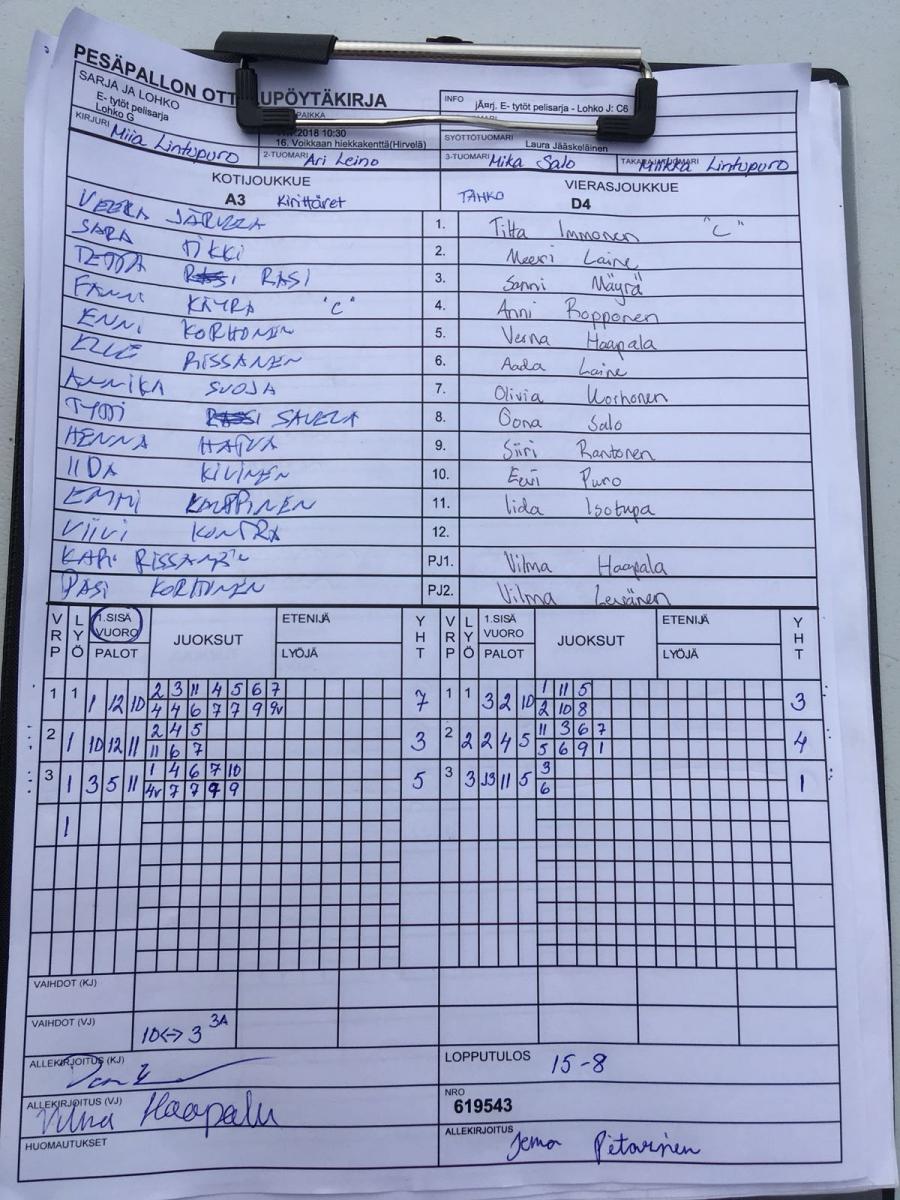 PESÄPALLON OTT LUPÖYTÄKIRJA
SARJA JA LOHKO
E- tytöt pelisarja
Lohko G
INFO
jÃ¤rj. E- tytöt pelisarja - Lohko J: C6
PAIKKA
2018 10:30
16. Voikkaan hiekkakenttä(Hirvelä)
SYÖTTÖTUOMARI
Laura Jääskeläinen
KIRJURI Miia Lintupuro
2-TUOMARI Ari Leino
3-TUOMARI Mika Salo
Miikka Lintupuro
KOTIJOUKKUE
A3 Kirittäret
TAHKO VIERASJOUKKUE
D4
VEERA JÄRVELÄ 1. Titta Immonen "C"
SARA TIKKI 2. Meeri Laine
RASI 3. Sanni Mäyrä
FANNI KÄYRÄ "C" 4. Anni Ropponen
ENNI KORHONEN 5. Verna Haapala
ELLE RISSANEN 6. Aada Laine
ANNIKA SUOJA 7. Olivia Korhonen
SAVELA 8. Oona Salo
HENNA 9. Siiri Rantonen
IIDA KIVINEN 10. Eevi Puro
EMMI KAUPPINEN 11. Iida Isotupa
VIIVI KONTRA 12.
KARI RISSANEN PJ1. Vilma Haapala
PASI KORHONEN PJ2. Vilma Leivänen
VRP LYÖ 1.SISÄ VUORO PALOT JUOKSUT ETENIJÄ LYÖJÄ YHT VRP LYÖ 1.SISÄ VUORO PALOT JUOKSUT ETENIJÄ LYÖJÄ YHT
2 3 11 4 5 6 7 1 11 5
1 1 1 12 10 4 4 6 7 7 9 9v 7 1 1 3 2 10 2 10 8 3
2 4 5 11 3 6 7
2 1 10 12 11 11 6 7 3 2 2 2 4 5 5 6 9 1 4
1 4 6 7 10 3
3 1 3 5 11 4v 7 7 9 9 5 3 3 13 11 5 6 1
1
VAIHDOT (KJ)
VAIHDOT (VJ) 10<->3 3A
ALLEKIRJOITUS (KJ)
LOPPUTULOS 15-8
ALLEKIRJOITUS (VJ) Vilma Haapala
NRO
619543
HUOMAUTUKSET
ALLEKIRJOITUS Jenna